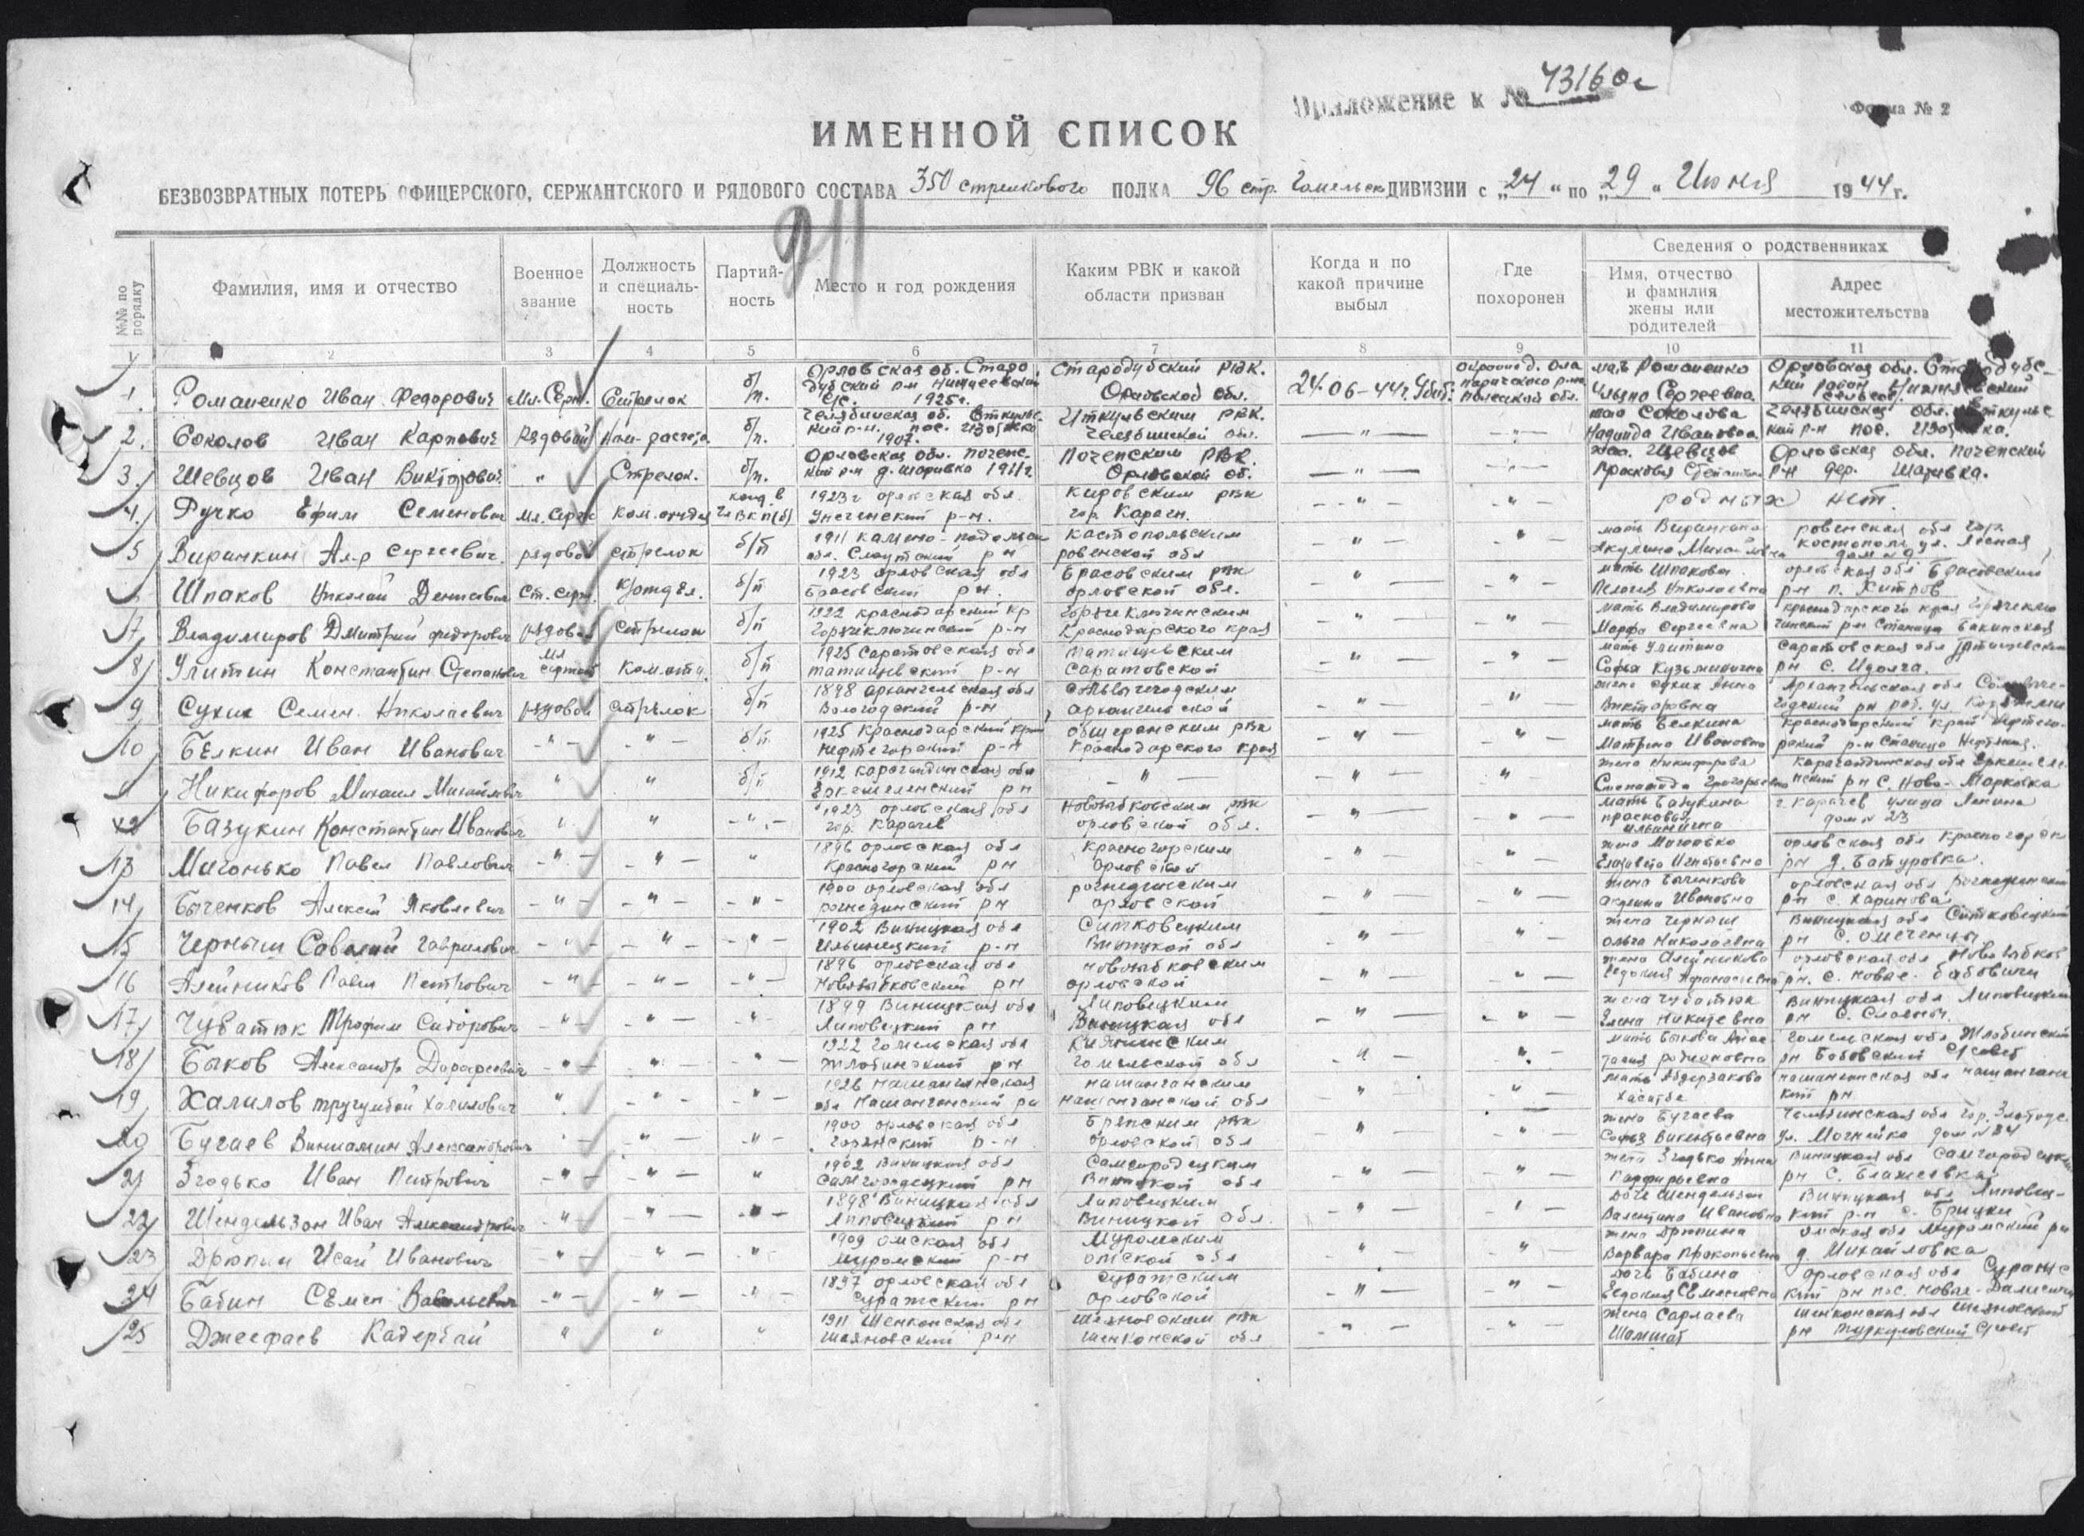 Приложение к № 43160с
Форма № 2
ИМЕННОЙ СПИСОК
БЕЗВОЗВРАТНЫХ ПОТЕРЬ ОФИЦЕРСКОГО, СЕРЖАНТСКОГО И РЯДОВОГО СОСТАВА 350 стрелкового ПОЛКА 96 стр. Гомельск ДИВИЗИИ с „24" по „29" Июня 1944 г.
911
№№ по порядку
Фамилия, имя и отчество
Военное звание
Должность и специальность
Партийность
Место и год рождения
Каким РВК и какой области призван
Когда и по какой причине выбыл
Где похоронен
Сведения о родственниках
Имя, отчество и фамилия жены или родителей
Адрес местожительства
1 2 3 4 5 6 7 8 9 10 11
1. Романенко Иван Федорович Мл. Серж. Стрелок б/п. Орловская об. Стародубский р-н с/с. 1925г. Стародубский РВК. Орловской обл. 24-06-44г. Убит. мать Романенко Орловская обл.
2. Соколов Иван Карпович Рядовой б/п. Челябинская об. 1907. Иткульским РВК. Челябинской обл. — " — — " — жена Соколова Надежда Ивановна. Челябинская обл. р-н пос.
3. Шевцов Иван Викторович " Стрелок. б/п. Орловская обл. Почепский р-н 1911г. Почепским РВК. Орловской об. — " — — " — Шевцов Прасковья Орловская обл. Почепский р-н дер.
4. Ручко Ефим Семенович Мл. Серж ком. отдел канд. в чл ВКП(б) 1923г орловская обл. Унечский р-н. Кировским рвк гор. — " — " — родных нет.
5 Виринкин Ал-р Сергеевич рядовой стрелок б/п 1911 каменс-подольск обл. Славутский р-н Кастопольским ровенской обл — " — " — мать Виринкина Акулина Михайловна ровенская обл гор. костополь ул. лесная дом № 9
Шпаков Николай Денисович Ст. серж. к/отдел. б/п 1923 орловская обл Брасовский р-н. Брасовским рвк орловской обл. — " — — " — мать Шпакова Пелагея Николаевна орловская обл Брасовский р-н п. Хитров
7 Владимиров Дмитрий федорович рядовой стрелок б/п 1922 краснодарский кр Горячеключинский р-н Горячеключинским Краснодарского края — " — — " — мать Владимирова Марфа Сергеевна краснодарского края р-н Станица Бакинская
8 Улитин Константин Степанович мл сержант ком. отд. б/п 1925 Саратовская обл татищевский р-н татищевским Саратовской — " — — " — мать Улитина Софья Кузьминична Саратовская обл Татищевский р-н с. Идолга.
9 Сухих Семен Николаевич рядовой стрелок б/п 1898 архангельская обл Вологодский р-н Сольвычегодским архангельской — " — " жена Сухих Анна Викторовна Архангельская обл
10 Белкин Иван Иванович - " - - " - б/п 1925 Краснодарский край Нефтегорский р-н рвк Краснодарского края — " — — " — мать Белкина Матрена Ивановна Краснодарский край р-н Станица Нефтяная.
Никифоров Михаил Михайлович " " б/п 1912 карагандинская обл р-н — " — — " — " — жена Никифорова карагандинская обл р-н с. Ново-Марковка
12 Базукин Константин Иванович " " - " - 1923 орловская обл гор. Карачев Новозыбковским рвк орловской обл. — " — " — мать Базукина прасковья ильинична г. Карачев улица Ленина дом № 23
13 Мигонько Павел Павлович - " - - " - " 1896 орловская обл Красногорский р-н Красногорским Орловской — " — " — жена Мигонько Елизавета Игнатьевна орловская обл Красногорск р-н д. Батуровка.
14 Быченков Алексей Яковлевич - " - - " - - " - 1900 орловская обл рогнединский р-н рогнединским орловской " — " — жена Быченкова Акулина Ивановна орловская обл Рогнединский р-н с. Харинова
15 Черныш Савелий Гаврилович - " - - " - - " - 1902 Виницкая обл Ильинецкий р-н Ситковецким Виницкой обл — " — " — жена Черныш Ольга Николаевна Виницкая обл Ситковецкий р-н с.
16 Алейников Павел Петрович - " - - " - - " - 1896 орловская обл Новозыбковский р-н Новозыбковским орловской — " — " — жена Алейникова Афанасьевна орловская обл Новозыбков р-н. с. Новые-Бобовичи
17 Чуватюк Трофим Сидорович - " - - " - - " - 1899 Виницкая обл Липовецкий р-н Липовецким Виницкая обл — " — " — жена Чуватюк Елена Никиевна Виницкая обл Липовецкий р-н с.
18 Быков Александр Дорофеевич - " - " - " - 1922 Гомельская обл Жлобинский р-н Гомельской обл " — " мать Быкова родионовна Гомельская обл Жлобинский р-н Бобовский С/совет
19 Халилов Халилович " - " - - " - 1926 наманганская обл Наманганский р-н наманганским наманганской обл " — " мать Хасибе наманганская обл р-н
20 Бугаев Виниамин Александрович " - " - - " - 1900 орловская обл р-н Брянским рвк орловской обл — " — " — жена Бугаева Софья Викентьевна Челябинская обл гор.
21 Згодько Иван Петрович - " - - " - " 1902 Виницкая обл Самгородецкий р-н Самгородецким Виницкой обл — " — " — жена Згодько Анна Парфирьевна Виницкая обл Самгородецкий р-н с. Блажеевка
22 Шендельзон Иван Александрович - " - - " - - " - 1898 Виницкая обл Липовецкий р-н Липовецким Виницкой обл. — " — " дочь Шендельзон Валентина Ивановна Виницкая обл Липовецкий р-н с. Брицки
23 Дрюпин Исай Иванович - " - - " - - " - 1909 омская обл Муромский р-н Муромским омской обл — " — " — жена Дрюпина Варвара Прокопьевна омская обл Муромский р-н д. Михайловка
24 Бабин Семен Васильевич - " - - " - - " - 1897 орловской обл Суражский р-н Суражским орловской — " — " — дочь Бабина Евдокия Семеновна орловская обл Суражский р-н пос. Новая-
25 Джеефаев Кадербай " " " 1911 обл р-н рвк обл — " — — " — жена Сарлаева Шамшат обл р-н С/совет